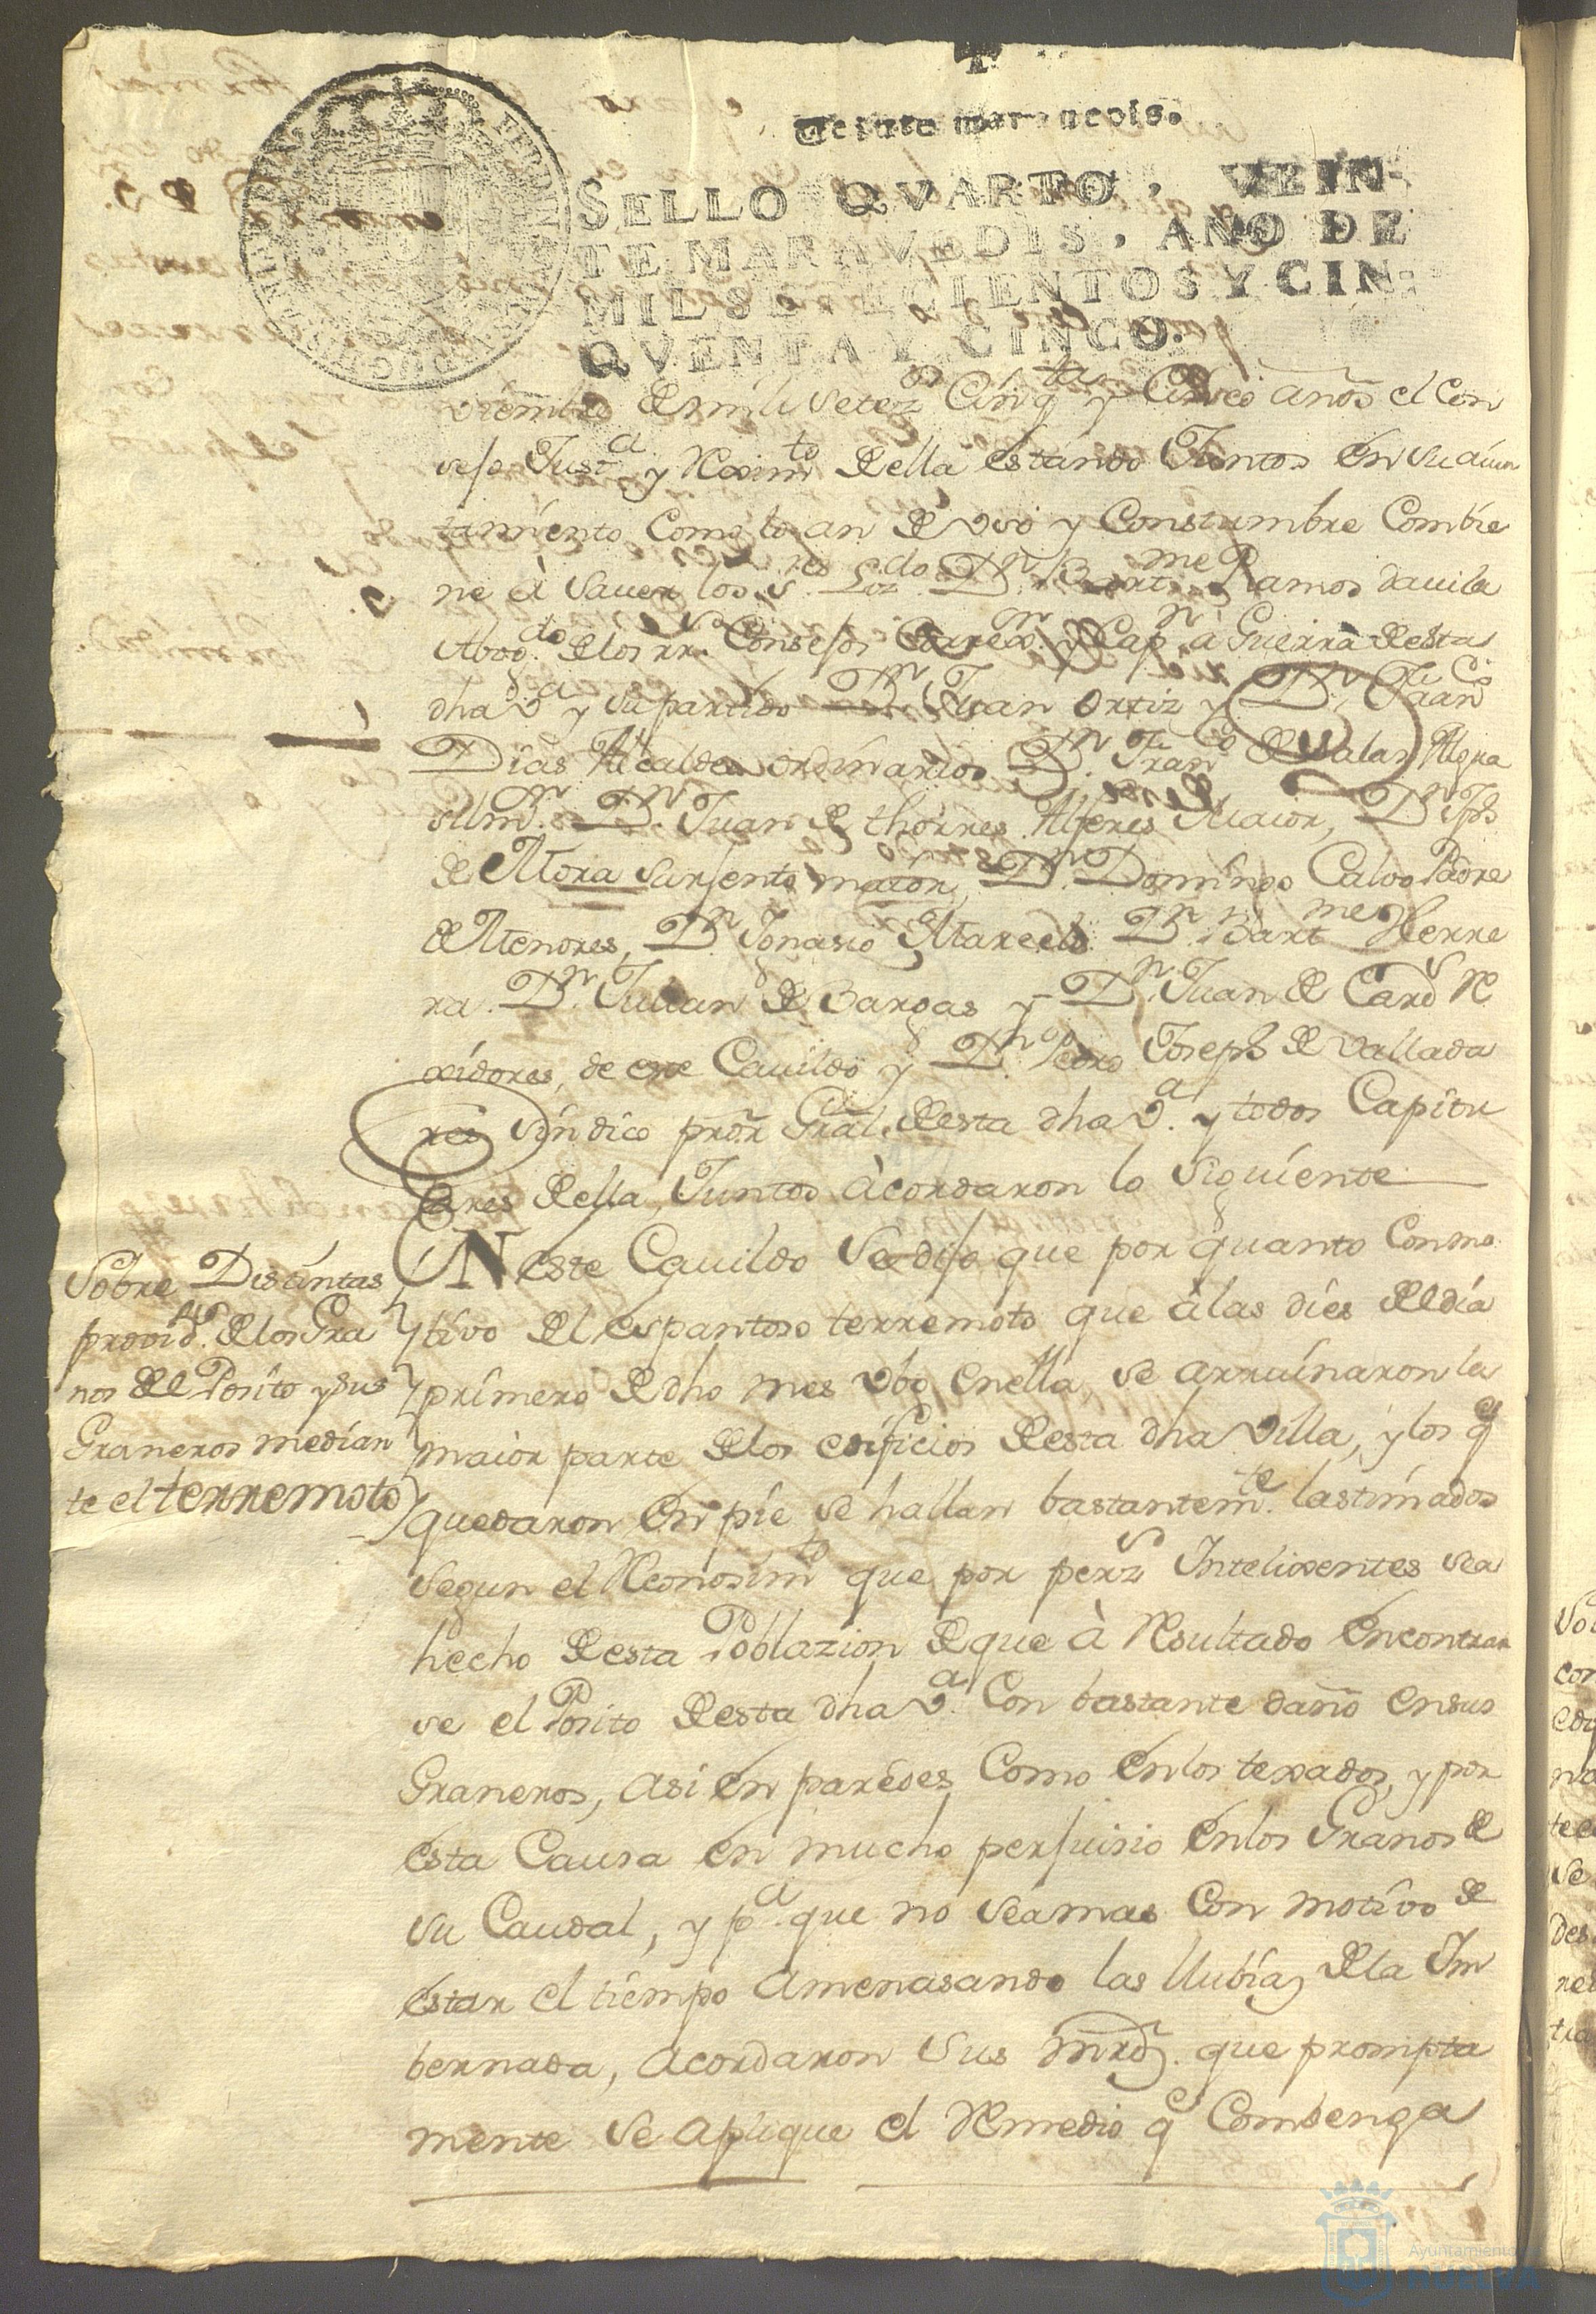 Veinte maravedis.
SELLO QVARTO, VEIN-
TE MARAVEDIS, AÑO DE
MIL SETECIENTOS Y CIN-
QVENTA Y CINCO.
viembre de mill setez.os Cinq.ta y Cinco años el Con
sejo Just.a y Reximt.o della estando Juntos en su aiun
tamiento como lo an de uso y Constumbre Combie
ne à saver los s.res Liz.do D.n Bart.me Ramos davila
Abog.do de los rr.s Consejos Correx.r y Cap.n à Guerra desta
dha v.a y su partido D.n Juan Ortiz y D.n Fran.co
Dias Alcaldes ordinarios D.n Fran.co de Salas Algua
sil m.r D.n Juan de thorres Alferes Maior, D.n Jph
de Mora Sarjento maior, D.n Domingo Calvo Padre
de Menores, D.n Ignasio Marcelo D.n Bart.me Herre
ra. D.n Julian de Bargas y D.n Juan de Card.s Re
xidores, de este Cavildo y D.n Pedro Joseph de Vallada
res sindico pror Gral. desta dha v.a y todos Capitu
lares della, Juntos àcordaron lo siguiente
Sobre Distintas
provid.as de los Gra
nos del Posito y sus
Graneros median
te el terremoto
EN este Cavildo se dijo que por quanto Conmo
tivo del espantoso terremoto que à las dies del dia
primero de dho mes vbo enella se arruinaron la
maior parte de los edificios desta dha villa, y los q
quedaron en pie se hallan bastantem.te lastimados
segun el Reconosim.to que por perz.s Intelixentes sea
hecho desta Poblazion de que à Resultado encontrar
se el Posito desta dha v.a Con bastante daño ensus
Graneros, asi en paredes Como enlos texados, y por
esta Causa en mucho perjuisio enlos Granos de
su Caudal, y p.a que no sea mas Con motivo de
estar el tiempo amenasando las llubias de la Im
bernada, acordaron sus mrds. que prompta
mente se aplique el Remedio q Combenga
Ayuntamiento de
HUELVA